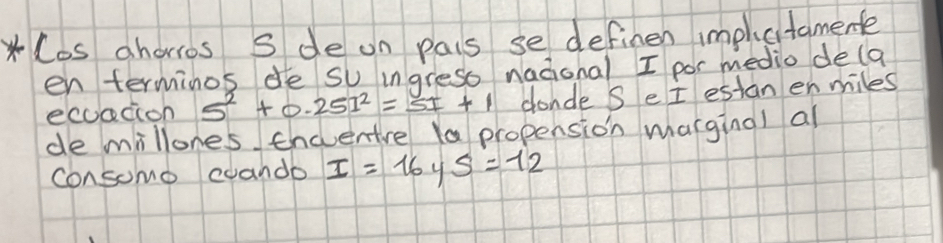 * Los ahorros S de un pais se definen implicitamente
en terminos de su ingreso nacional I por medio de la
ecuacion S² + 0.25I² = SI + 1 donde S e I estan en miles
de millones. Encuentre la propensión marginal al
consumo cuando I = 16 y S = 12